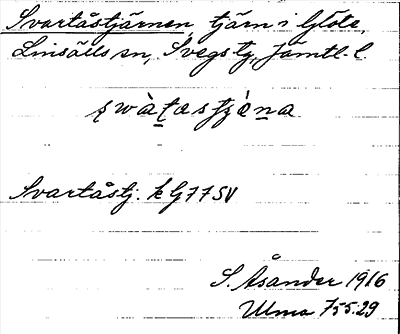 Svartåstjärnen tjärn i Glöte,
Linsälls sn, Svegs tg, Jämtl. l.
Svartåstj. k G77SV
S. Åsander 1916
Ulma 755:29